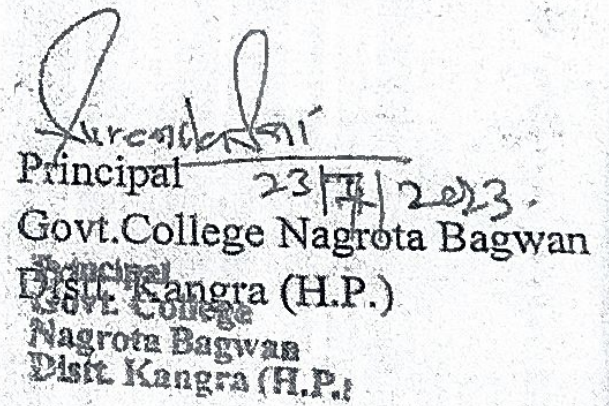 Surender
Principal
23/7/2023.
Govt.College Nagrota Bagwan
Distt. Kangra (H.P.)
Principal
Govt. College
Nagrota Bagwan
Distt. Kangra (H.P.)